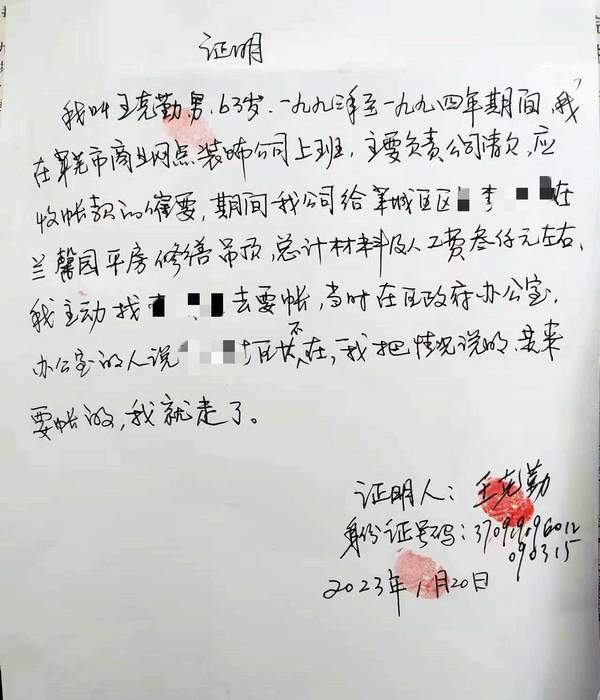 证明
我叫王克勤,男,63岁.一九九三年至一九九四年期间,我
在莱芜市商业网点装饰公司上班,主要负责公司清欠,应
收帐款的催要,期间我公司给莱城区区李在
兰馨园平房修缮吊顶,总计材料及人工费叁仟元左右,
我主动找李去要帐,当时在区政府办公室,
办公室的人说区长不在,我把情况说明,是来
要帐的,我就走了。
证明人:王克勤
身份证号码:
090315
2023年1月20日